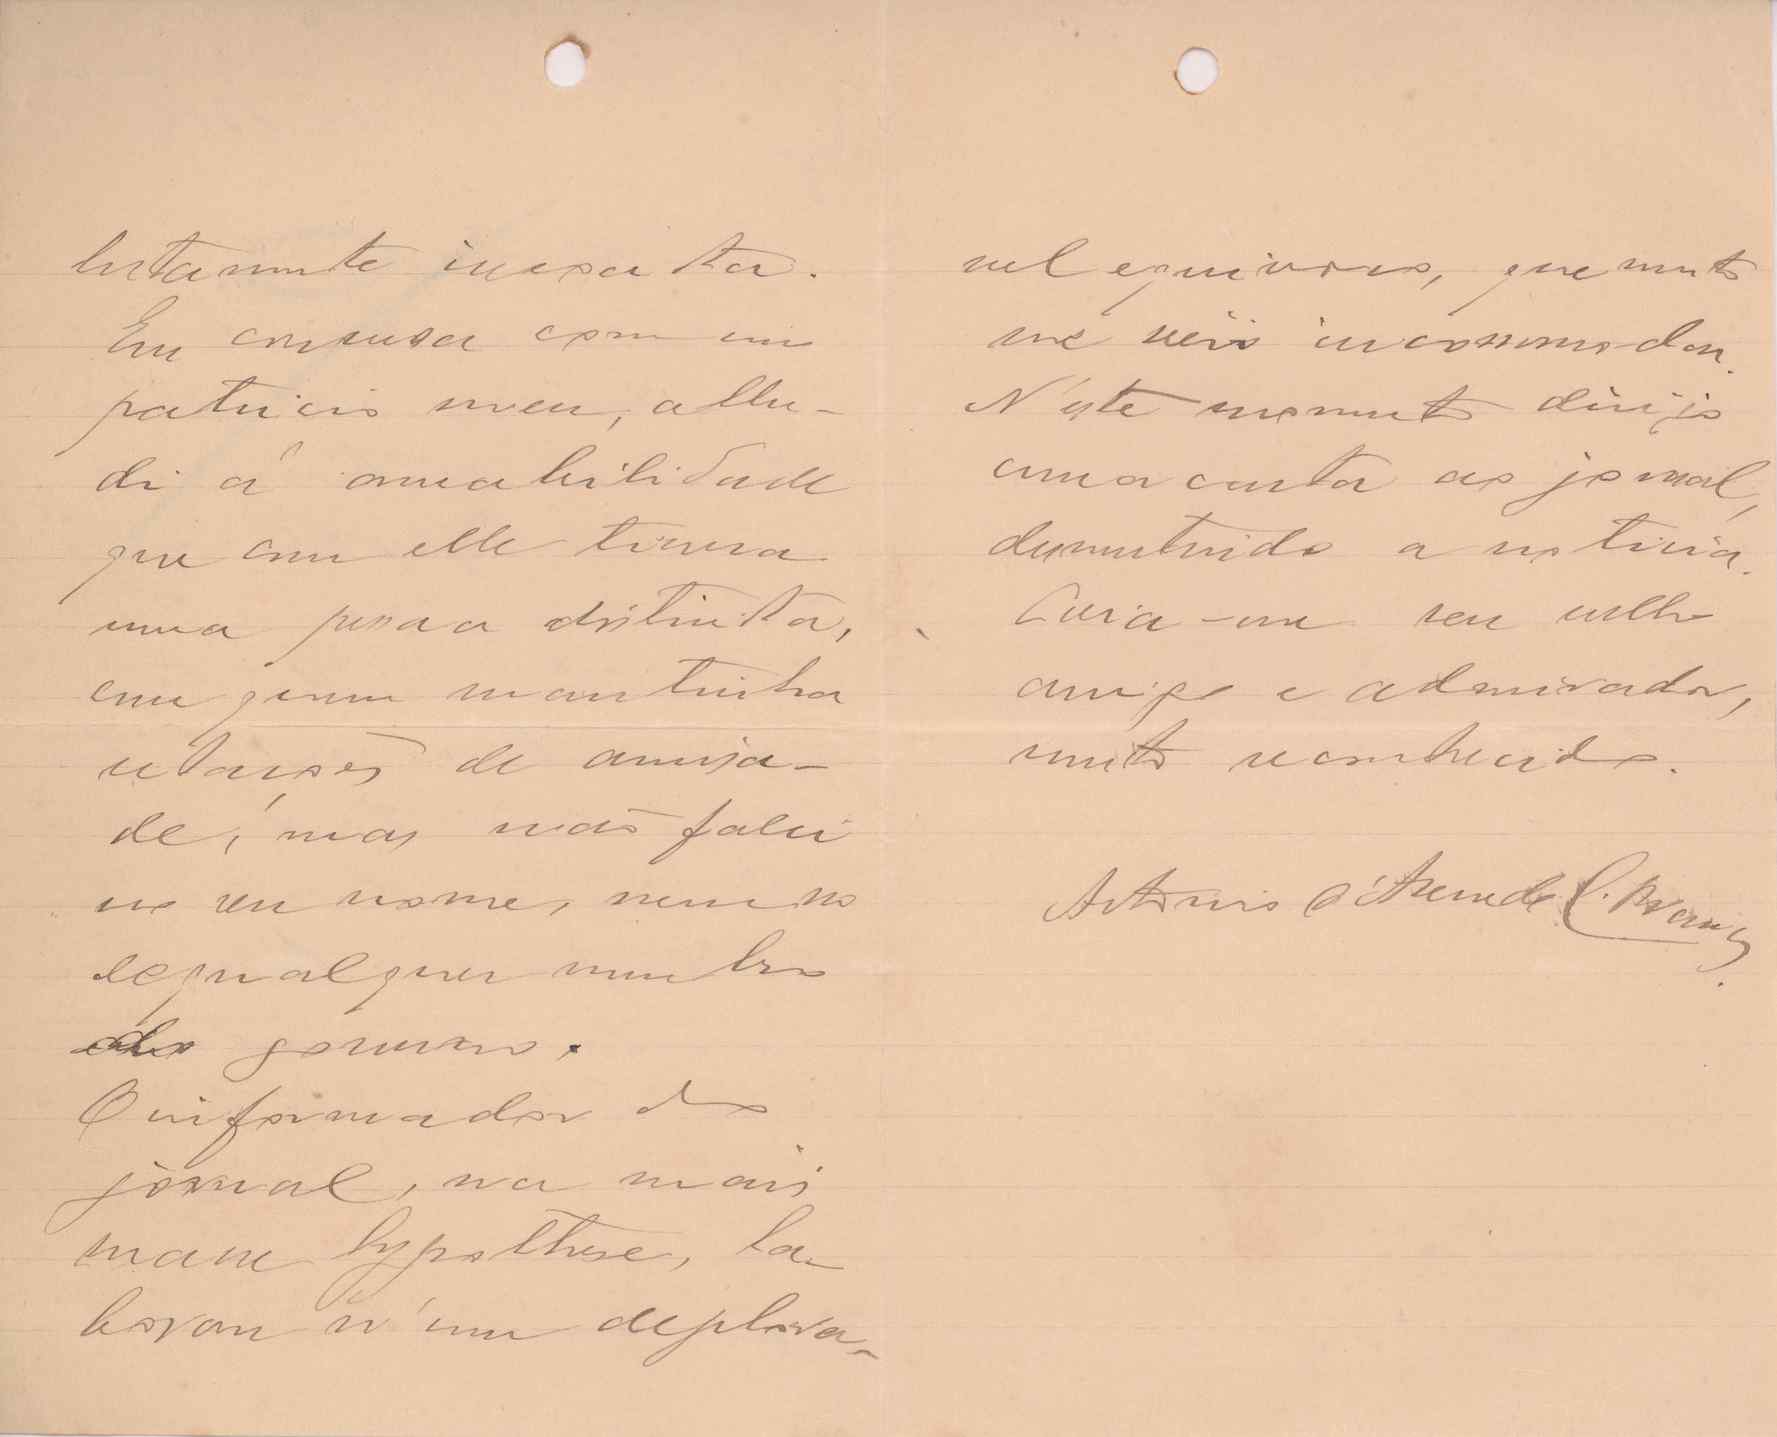 lutamente inexacta.
Em conversa com um
patricio meu, allu-
di á amabilidade
que com elle tivera
uma pessoa distincta,
com quem mantinha
relações de amisa-
de; mas não falei
no seu nome, nem no
de qualquer membro
do governo.
O informador do
jornal, na mais
suave hypothese, la-
borou n'um deplora-
vel equivoco, que muito
me veio incommodar.
N'este momento dirijo
uma carta ao jornal,
desmentindo a noticia.
Creia-me seu velho
amigo e admirador,
muito reconhecido.
Antonio d'Azevedo C. Branco.